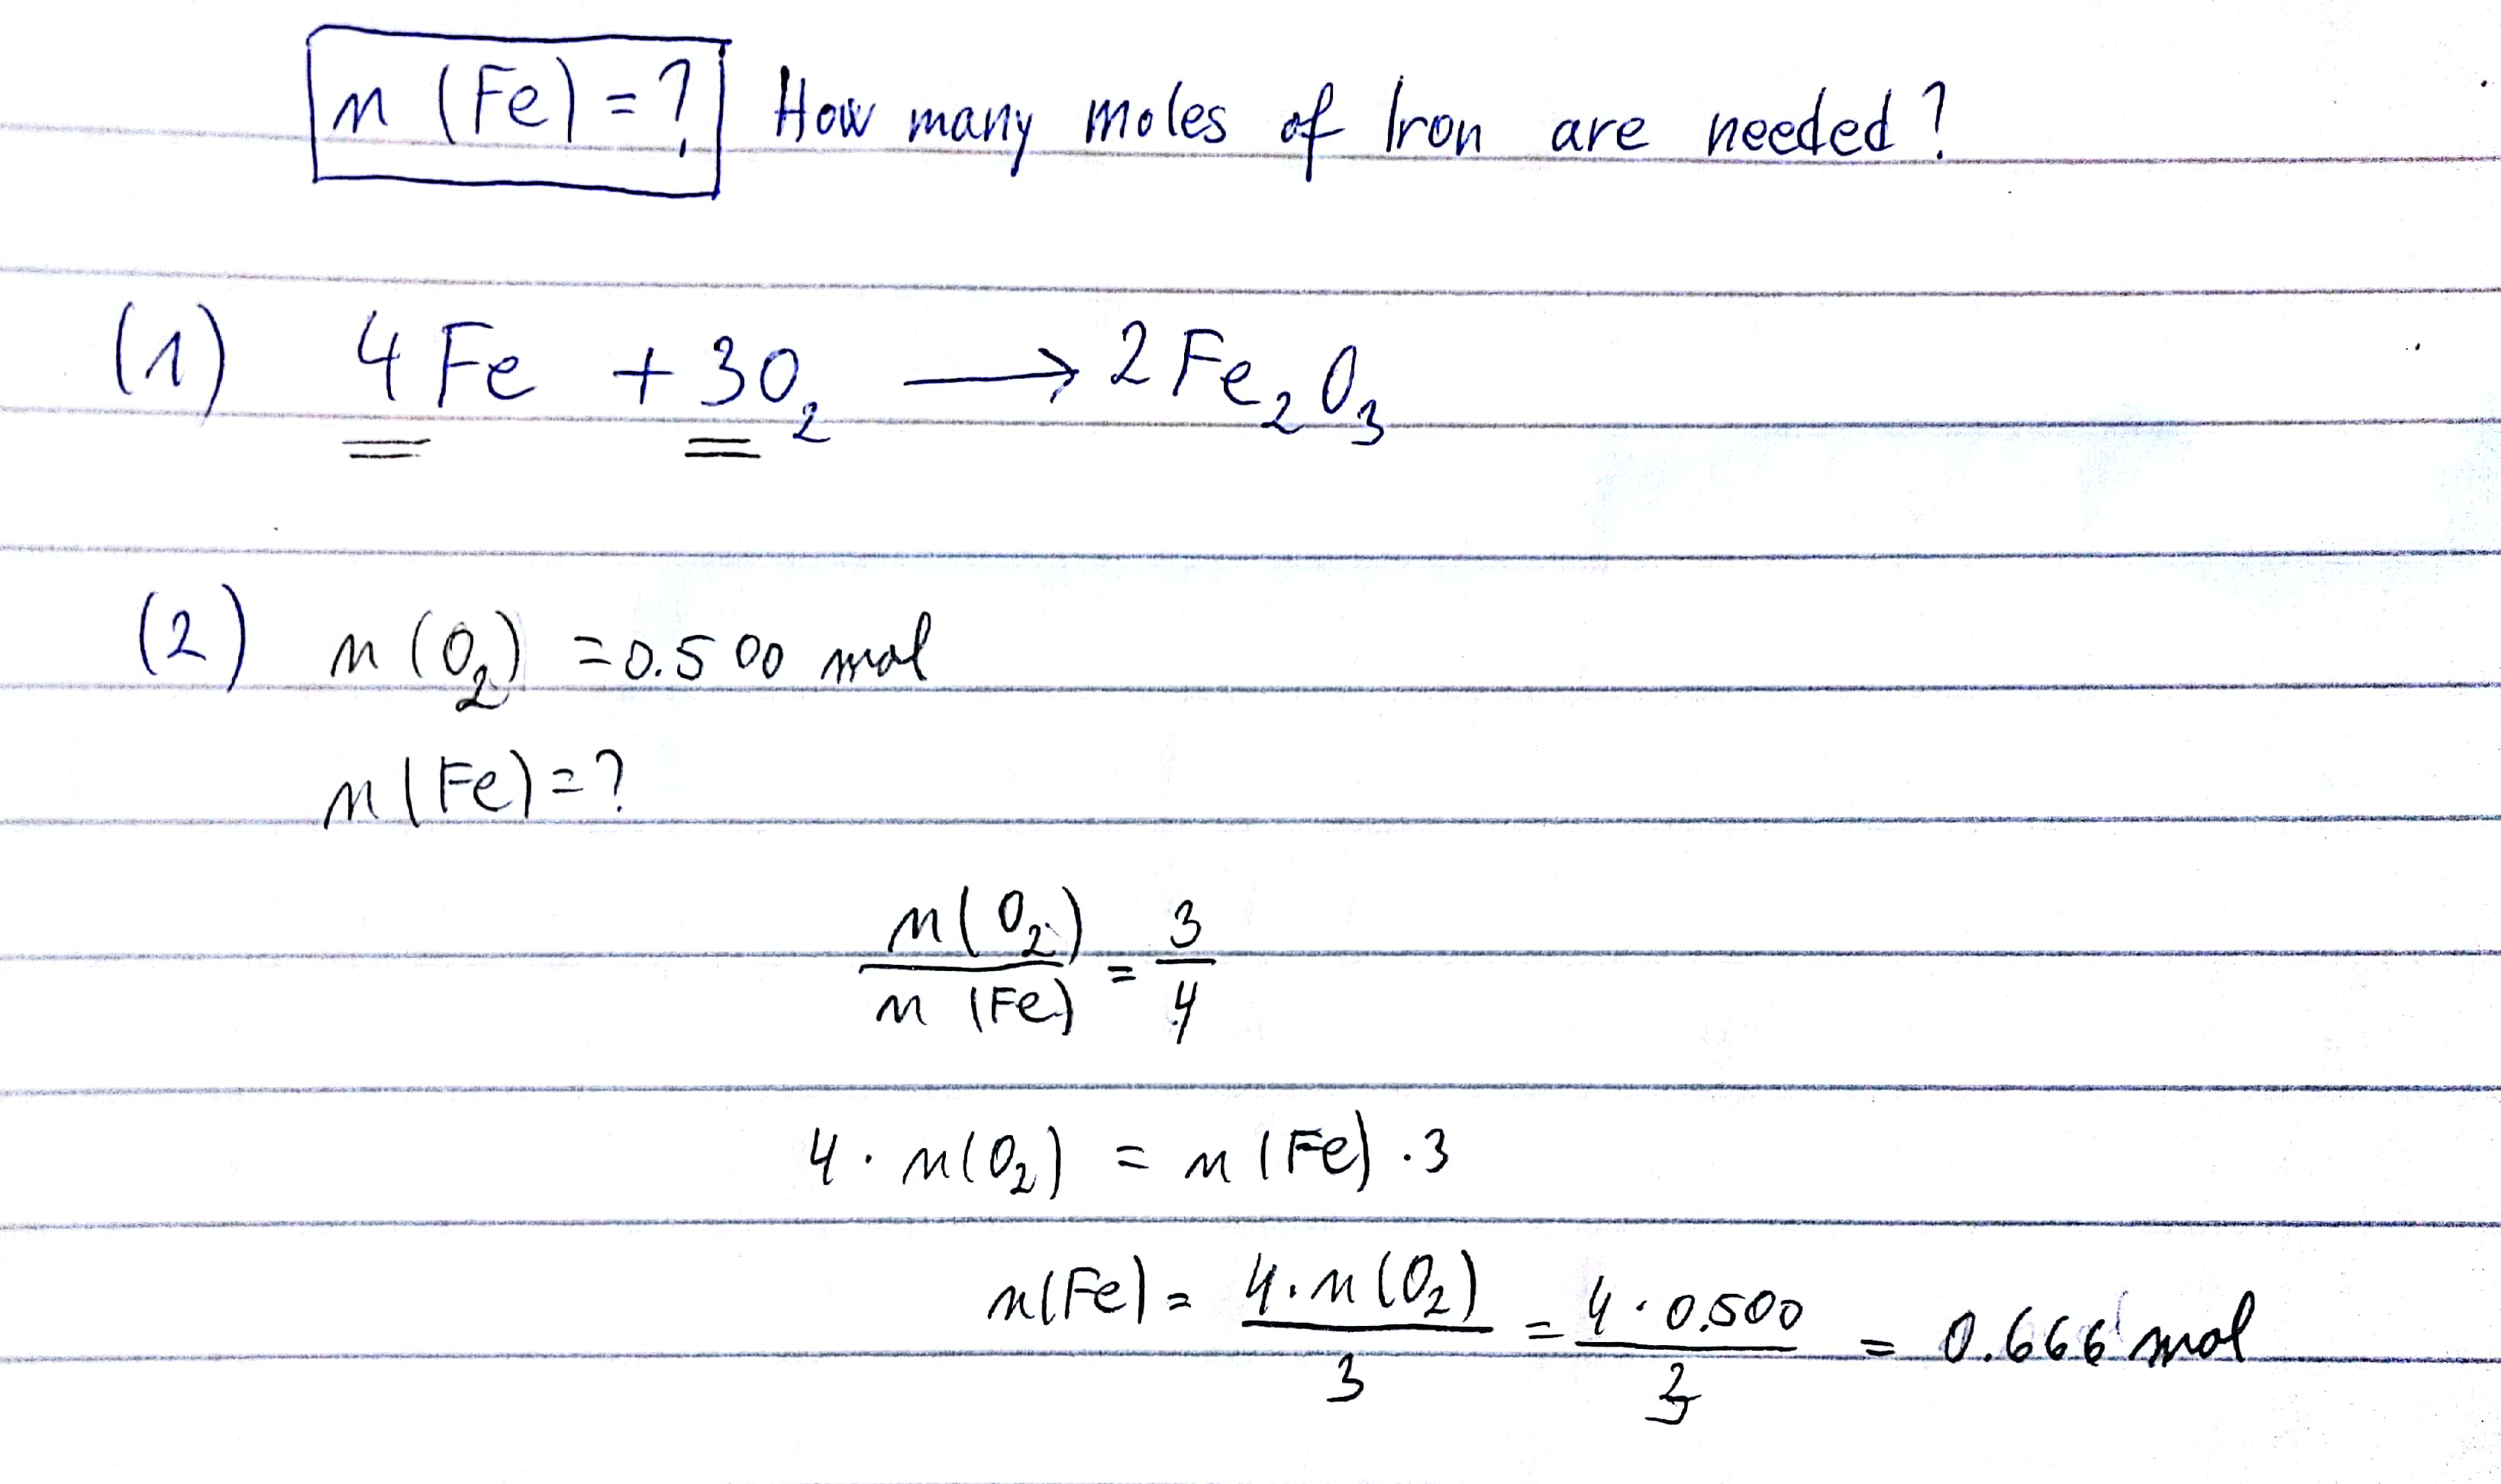 n (Fe) = ? How many moles of Iron are needed?
(1) 4 Fe + 3O₂ ⟶ 2 Fe₂O₃
(2) n (O₂) = 0.500 mol
n (Fe) = ?
n (O₂) / n (Fe) = 3 / 4
4 · n(O₂) = n (Fe) · 3
n(Fe) = 4 · n (O₂) / 3 = 4 · 0.500 / 3 = 0.666 mol